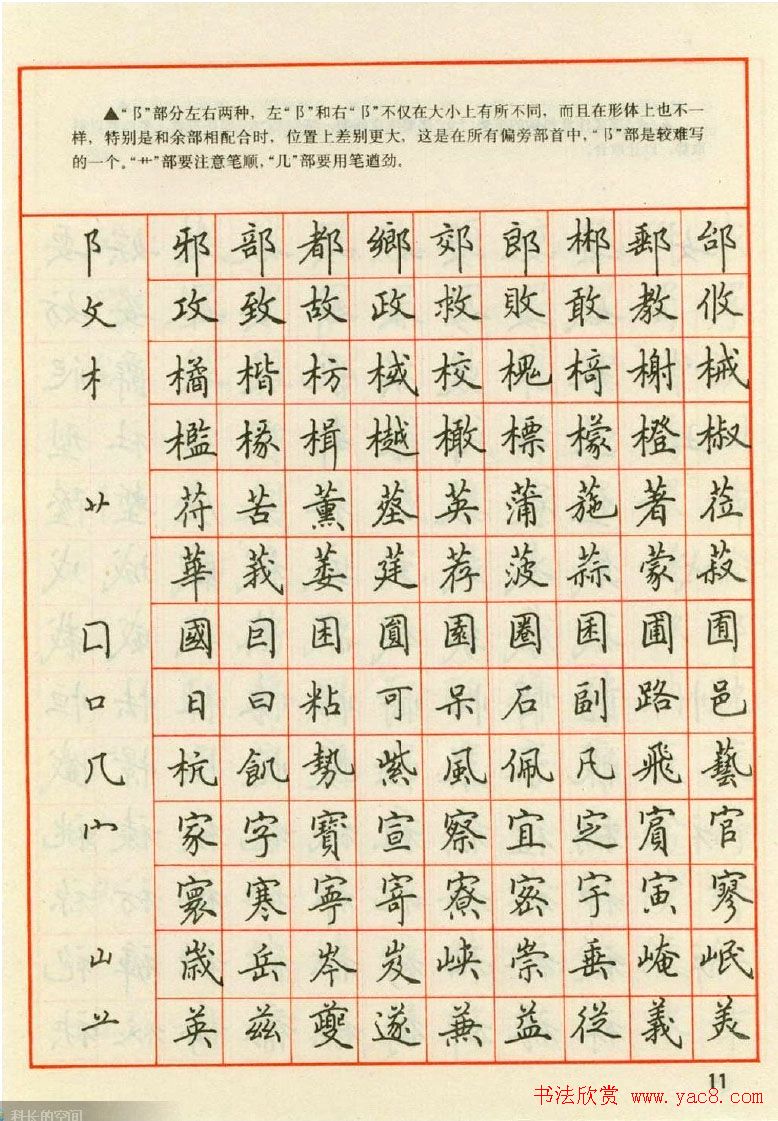 ▲“阝”部分左右两种，左“阝”和右“阝”不仅在大小上有所不同，而且在形体上也不一
样，特别是和余部相配合时，位置上差别更大，这是在所有偏旁部首中，“阝”部是较难写
的一个。“艹”部要注意笔顺，“几”部要用笔遒劲。
阝 邪 部 都 鄉 郊 郎 郴 郵 邰
攵 攻 致 故 政 救 敗 敢 教 攸
木 橘 楷 枋 棫 校 槐 椅 榭 械
檻 椽 楫 樾 橄 標 檬 橙 椒
艹 苻 苦 薰 英 蒲 葹 著 莅
華 莪 萎 莛 荐 菠 蒜 蒙 菽
囗 國 回 困 園 圈 困 圃
口 日 曰 粘 可 呆 石 副 路 邑
几 杭 飢 勢 紫 風 佩 凡 飛 藝
宀 家 字 寶 宣 察 宜 定 賓 官
寰 寒 寧 寄 寮 密 宇 寅 寥
山 歲 岳 岑 岌 峽 崇 垂 崦 岷
英 茲 夔 遂 兼 益 從 義 美
11
书法欣赏 www.yac8.com
科长的空间